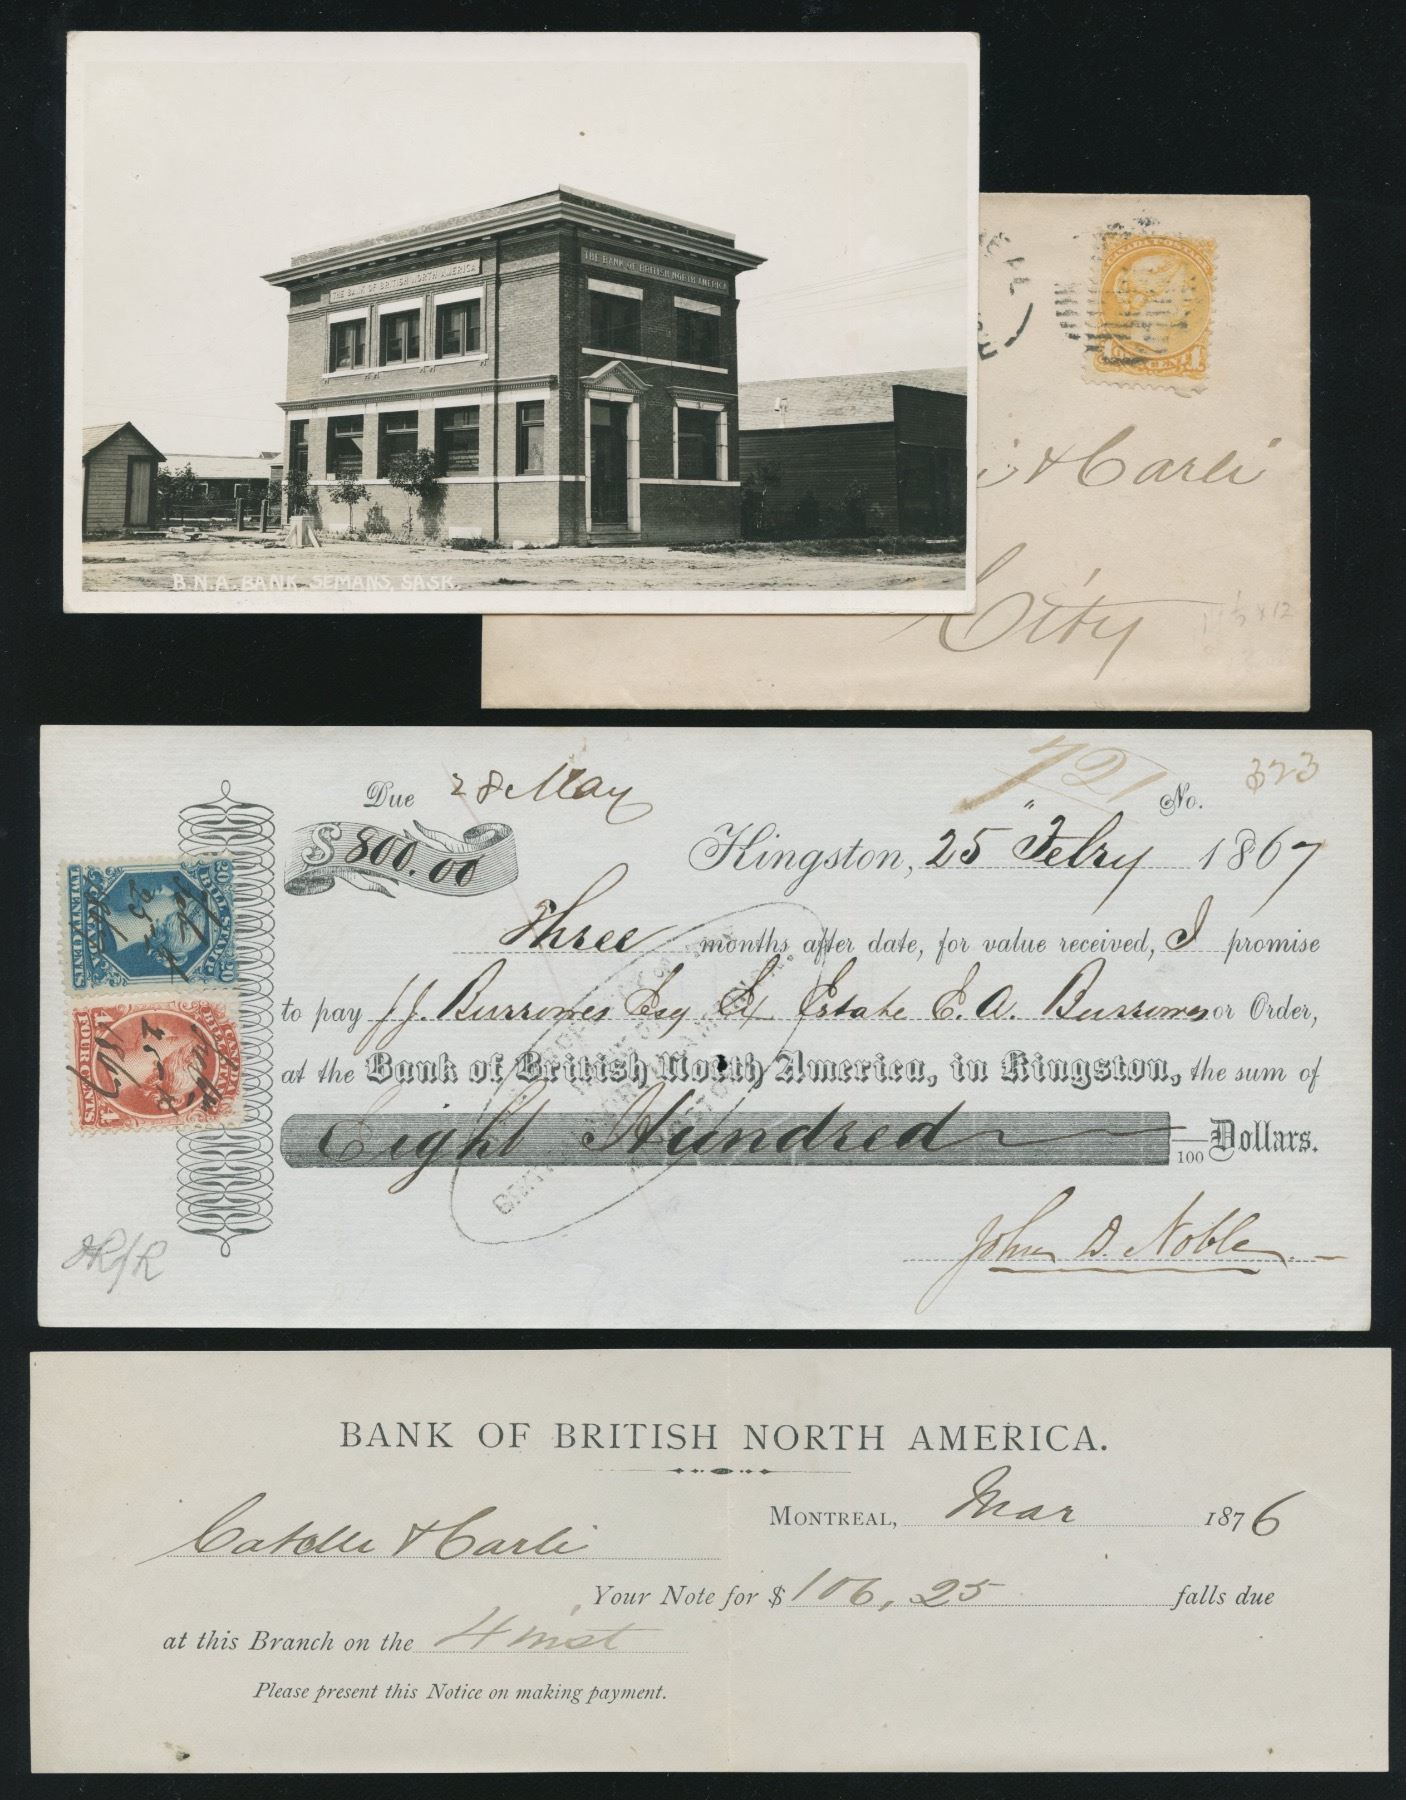 THE BANK OF BRITISH NORTH AMERICA
THE BANK OF BRITISH NORTH AMERICA
B.N.A. BANK, SEMANS, SASK.
CANADA POSTAGE
1 ONE CENT 1
& Carli
City
Due 28 May
721
No. 323
$ 800.00
Kingston, 25 Febry 1867
Three months after date, for value received, I promise
to pay J.J. Burrowes Esq Ex Estate E. A. Burrowes or Order,
at the Bank of British North America, in Kingston, the sum of
Eight Hundred /100 Dollars.
John D. Noble
20 BILL STAMP 20
CANADA
TWENTY CENTS
CANADA
BILL STAMP
4 FOUR CENTS 4
1867
BANK OF BRITISH NORTH AMERICA.
MONTREAL, Mar 1876
Catelli & Carli
Your Note for $ 106,25 falls due
at this Branch on the 4 inst
Please present this Notice on making payment.